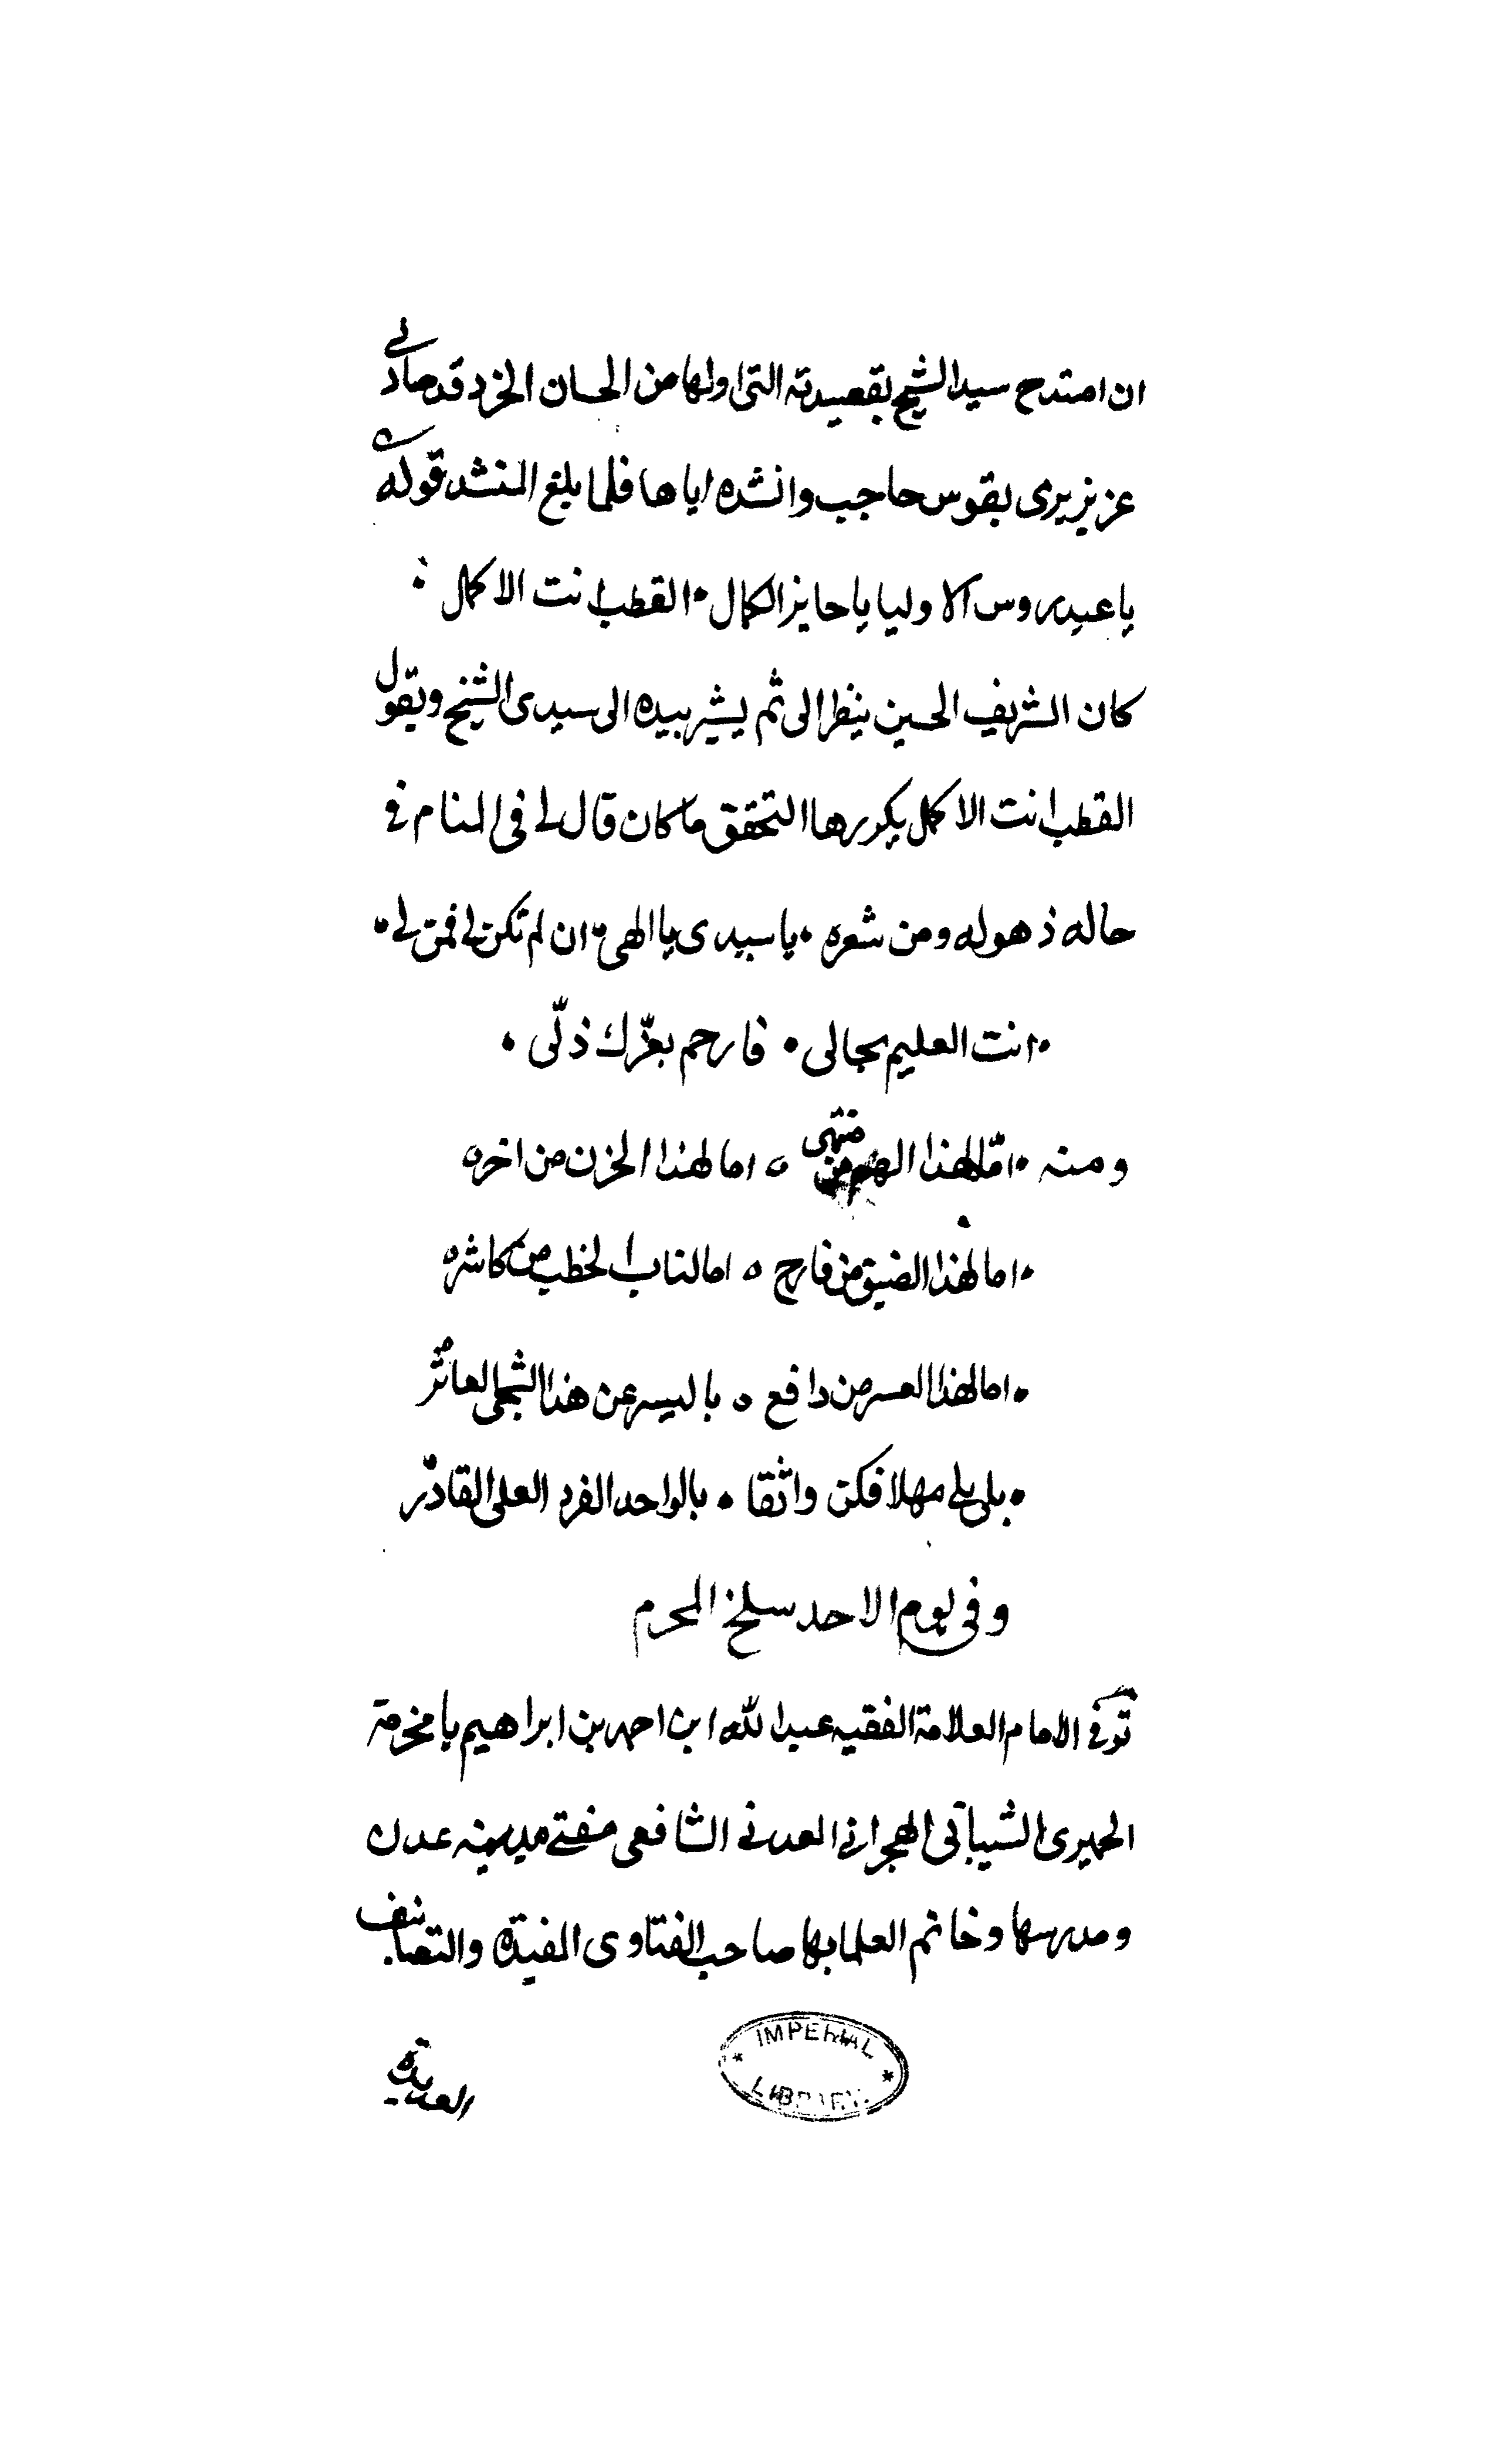 ان امتدح سيدالشيخ بقصيدته التى اولها من الحسان الخرد قد صادني
عزيزيرى بقوس حاجب وانشده اياها فلما بلغ المنشد قوله
ياعيدروس الاوليا ياحايز الكمال • القطب انت الاكمل •
كان الشريف الحسين ينظر الى ثم يشير بيده الى سيدى الشيخ ويقول
القطب انت الاكمل يكررها التحقق ماكان قال لى فى المنام فى
حاله ذهوله ومن شعره • ياسيدى ياالهى • ان لم تكن لى فمن لى •
• انت العليم بحالى • فارحم بعزّك ذلّى •
ومنه • امّا لهذا الهم من منتهى ه اما لهذا الحزن من اخره
• اما لهذا الضيق من فارج ه اما لناب الخطب من كاشره
• اما لهذا العسر من دافع ه باليسر عن هذا الشجى العاثر
• بلى بلى مهلا فكن واثقا • بالواحد الفرد العلى القادر
وفى يوم الاحد سلخ المحرم
توفى الامام العلامة الفقيه عبدالله ابن احمد بن ابراهيم بامخرمة
الحميرى الشيبانى الهجرانى العدنى الشافعى مفتى مدينه عدن
ومدرسها وخاتم العلما بها صاحب الفتاوى المفيدة والتصانيف
العديدة
IMPERIAL LIBRARY